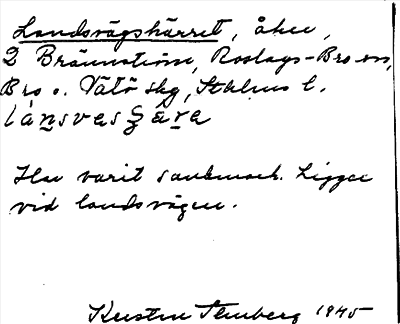 Landsvägskärret, åker,
2 Bräunstione, Roslags-Bro sn,
Bro o. Vätö skg, Sthlms l.
lánsvesʒæ̂re
Har varit sankmark. Ligger
vid landsvägen.
Kersten Stenberg 1945